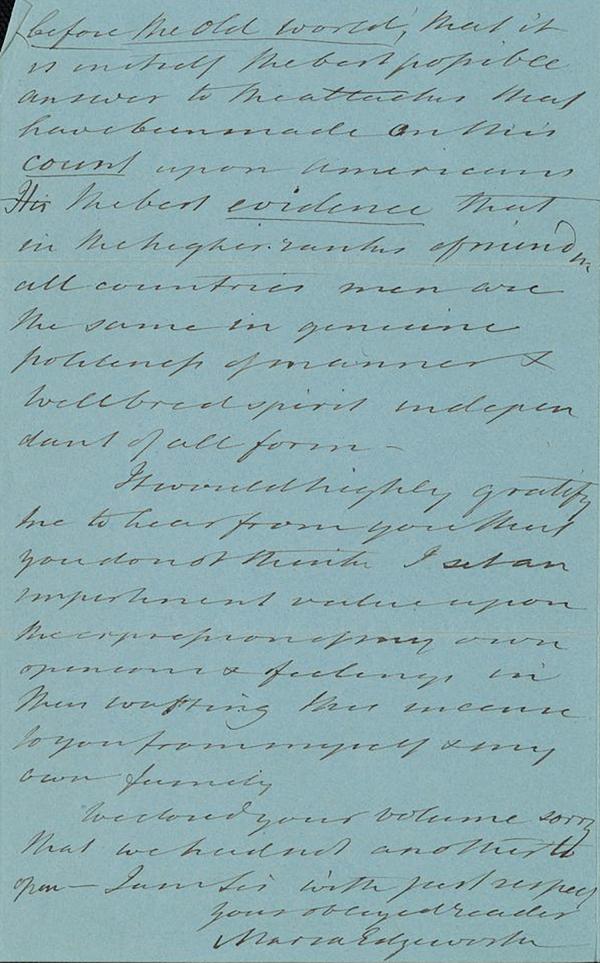 before the Old World, that it
is in itself the best possible
answer to the attacks that
have been made on this
count upon Americans
It is the best evidence that
in the higher ranks of mind in
all countries men are
the same in genuine
politeness of manner &
wellbred spirit indepen
dant of all form —
It would highly gratify
me to hear from you that
you do not think I set an
impertinent value upon
the expression of my own
opinions & feelings in
thus wafting this incense
to you from myself & my
own family
We closed your volume sorry
that we had not another to
open — I am Sir with just respect
your obliged reader
Maria Edgeworth